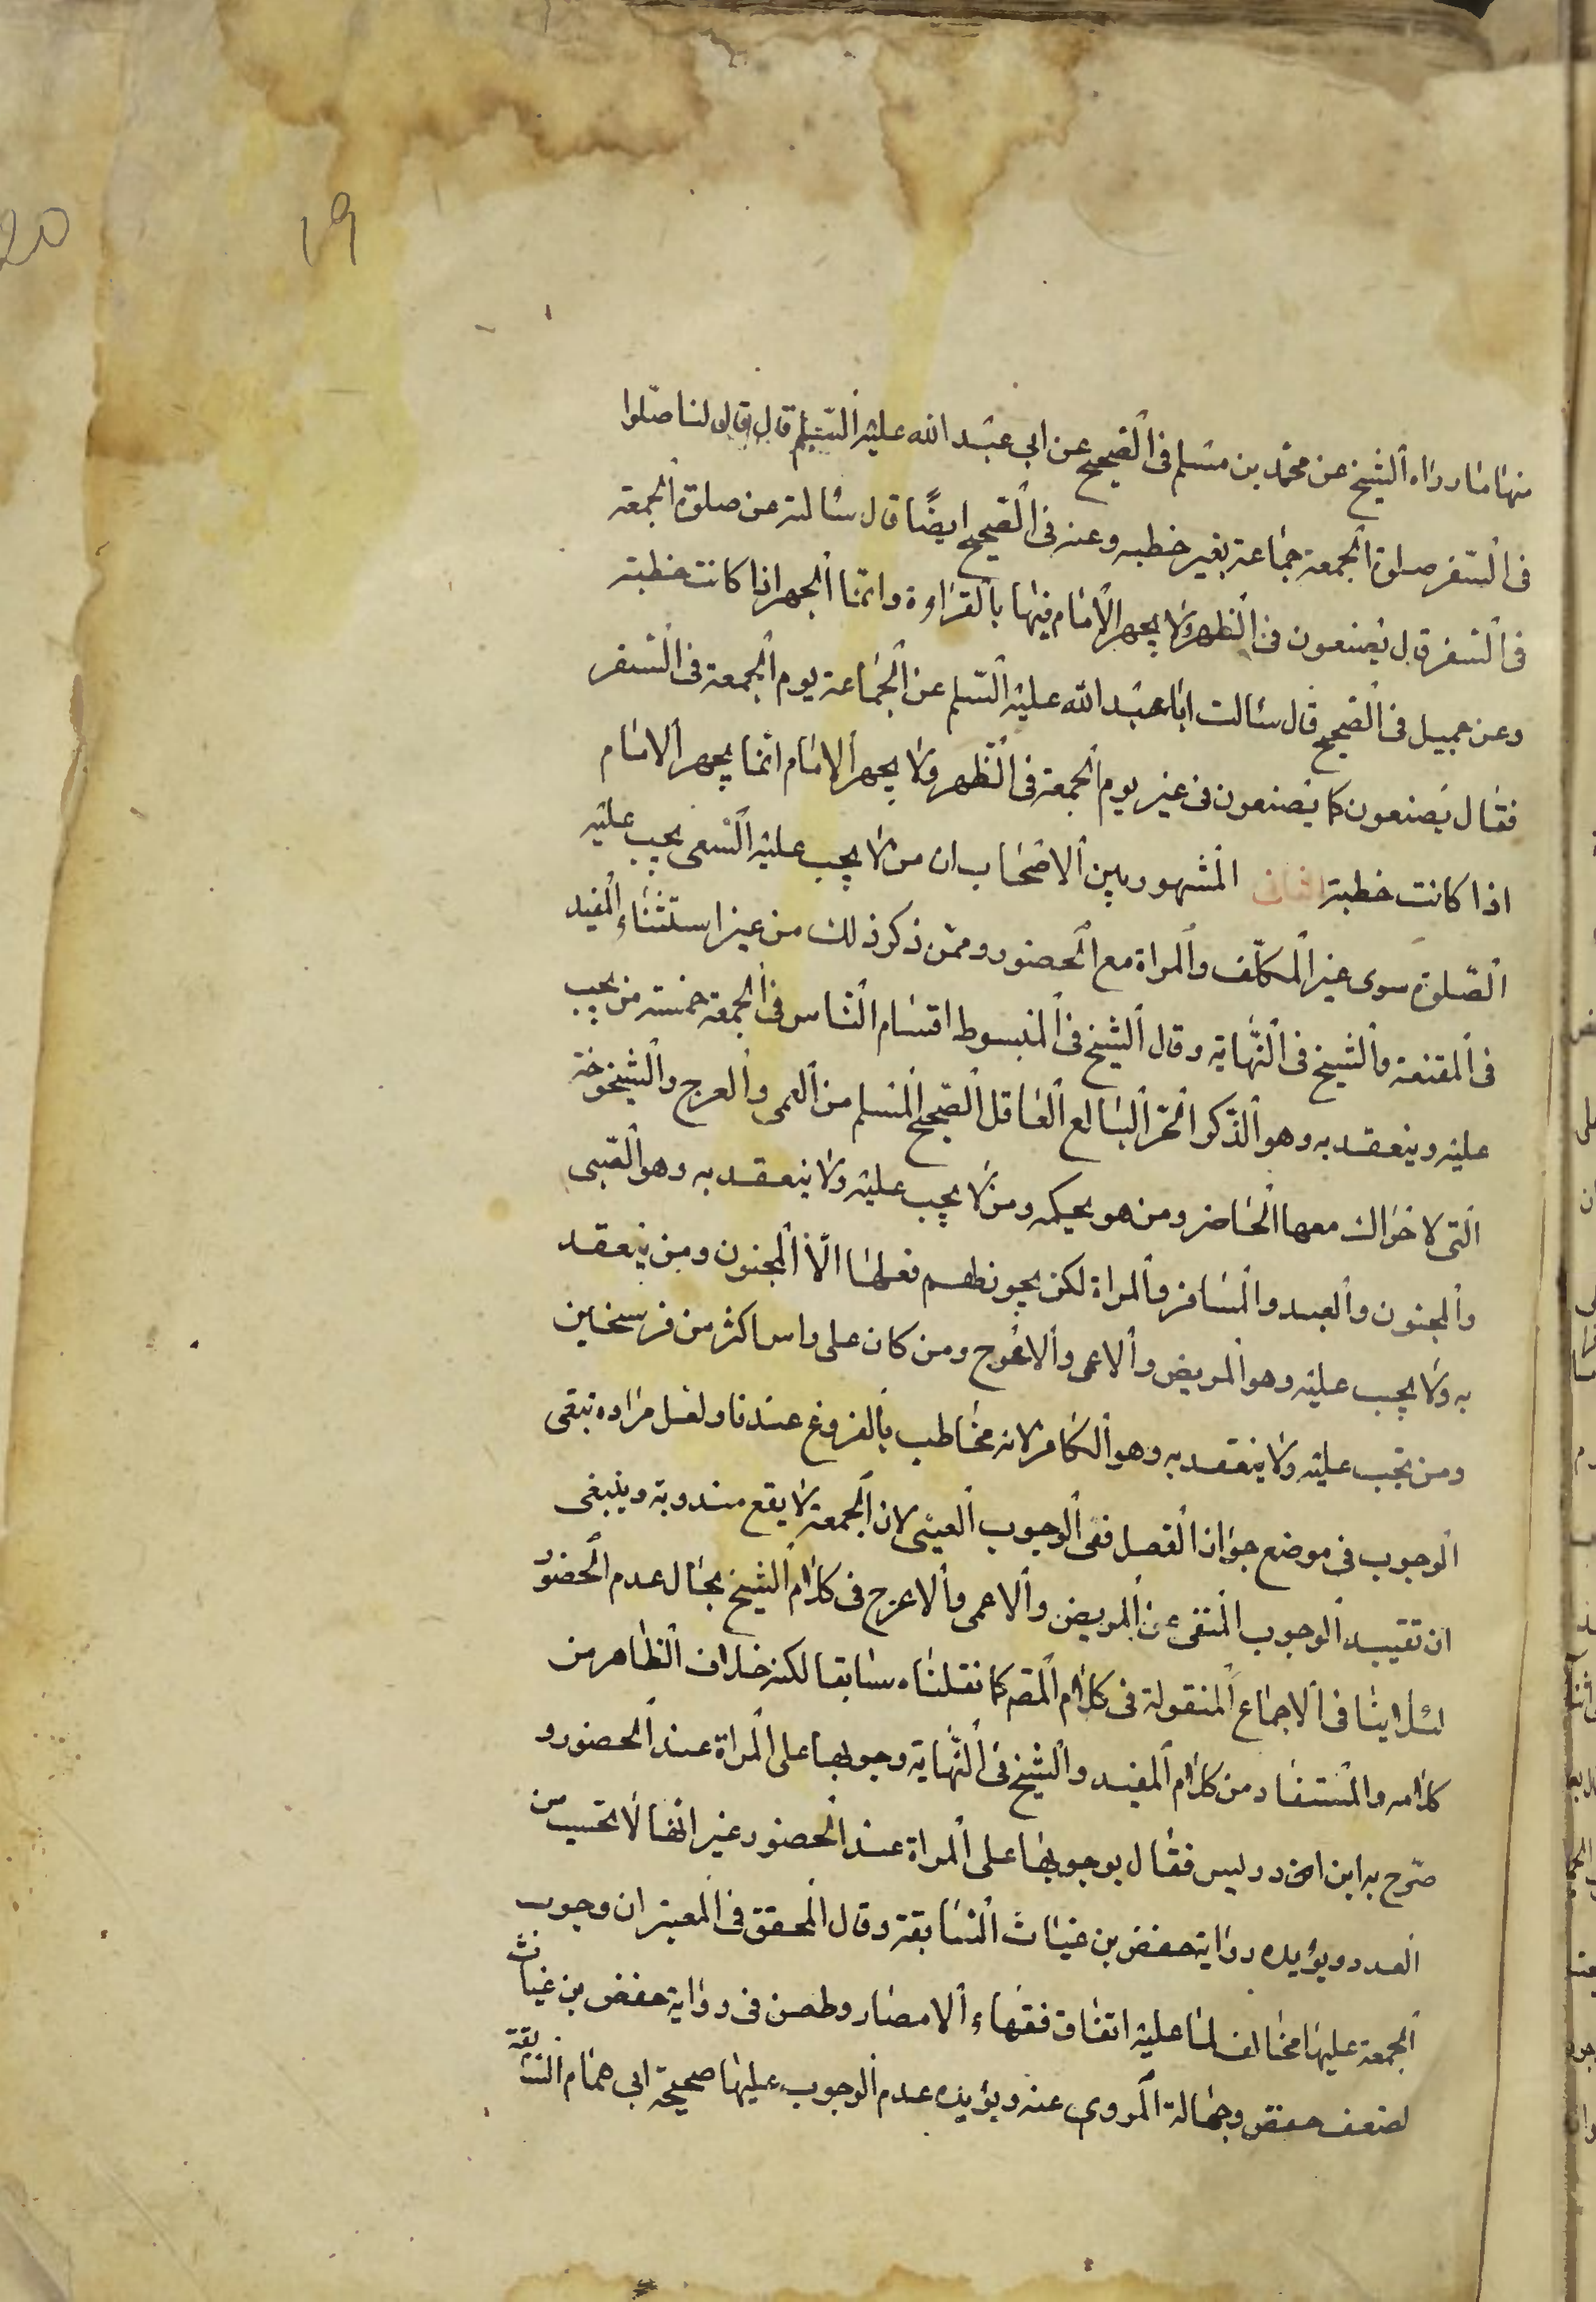 20
19
منها ما رواه الشيخ عن محمد بن مسلم فى الصحيح عن ابى عبد الله عليه السلم قال قال لنا صلوا
فى السفر صلوة الجمعة جماعة بغير خطبه وعنه فى الصحيح ايضًا قال سالته عن صلوة الجمعة
فى السفر قال يصنعون فى الظهر ولا يجهر الامام فيها بالقراءة وانما الجهر اذا كانت خطبته
وعن جميل فى الصحيح قال سالت ابا عبد الله عليه السلم عن الجماعة يوم الجمعة فى السفر
فقال يصنعون كما يصنعون فى غير يوم الجمعة فى الظهر ولا يجهر الامام انما يجهر الامام
اذا كانت خطبته الثانى المشهور بين الاصحاب ان من لا يجب عليه السعى يجب عليه
الصلوة سوى غير المكلف والمراة مع الحضور وممن ذكر ذلك من غير استثناء المفيد
فى المقنعة والشيخ فى النهاية وقال الشيخ فى المبسوط اقسام الناس فى الجمعة خمسة من يجب
عليه وينعقد به وهو الذكر الحر البالغ العاقل الصحيح المسلم من العمى والعرج والشيخوخة
التى لا حراك معها الحاضر ومن هو بحكمه ومن لا يجب عليه ولا ينعقد به وهو الصبى
والمجنون والعبد والمسافر والمراة لكن يجوز لهم فعلها الا المجنون ومن ينعقد
به ولا يجب عليه وهو المريض والاعمى والاعرج ومن كان على راس اكثر من فرسخين
ومن يجب عليه ولا ينعقد به وهو الكافر لانه مخاطب بالفروع عندنا ولعل مراده نبقى
الوجوب فى موضع جواز الفصل ففى الوجوب العينى لان الجمعة لا يقع مندوبة وينبغى
ان تقييد الوجوب المنفى عن المريض والاعمى والاعرج فى كلام الشيخ بحال عدم الحضور
لئلا ينافى الاجماع المنقولة فى كلام المقم كما نقلناه سابقا لكنه خلاف الظاهر من
كلامه والمستفاد من كلام المفيد والشيخ فى النهاية وجوبها على المراة عند الحضور و
صرح به ابن ادريس فقال بوجوبها على المراة عند الحضور غير انها لا تحتسب من
العدد ويؤيده رواية حفص بن غياث السابقة وقال المحقق فى المعتبر ان وجوب
الجمعة عليها مخالف لما عليه اتفاق فقهاء الامصار وطعن فى رواية حفص بن غياث
لضعف حفص وجهالة المروى عنه ويؤيده عدم الوجوب عليها صحيحة ابى همام السابقة